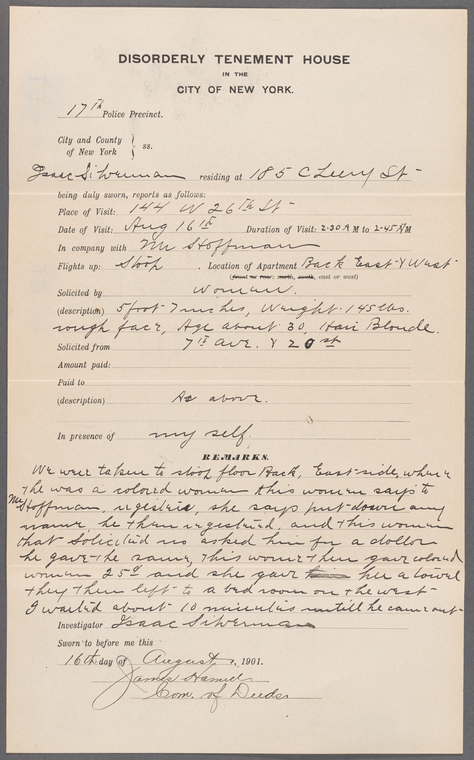 DISORDERLY TENEMENT HOUSE
IN THE
CITY OF NEW YORK.
17th Police Precinct.
City and County
of New York } ss.
Isaac Silverman residing at 185 Cleery St
being duly sworn, reports as follows:
Place of Visit: 144 W 26th St
Date of Visit: Aug 16th Duration of Visit: 2-30 AM to 2-45 AM
In company with Mr Hoffman
Flights up: Stoop . Location of Apartment Back East & West
(front or rear; north, south, east or west)
Solicited by woman.
(description) 5 foot 7 inches, Weight 145 lbs.
rough face, Age about 30, Hair Blonde.
Solicited from 7th Ave. & 20st
Amount paid:
Paid to
(description) As above.
In presence of my self
REMARKS.
We were taken to stoop floor Back, East side, where
the was a colored woman this woman says to
Mr Hoffman, register, she says put down any
name, he then registered, and this woman
that Solicited us asked him for a dollar
he gave the same, this woman then gave colored
woman 25¢ and she gave her a towel
they then left to a bed room on the west
I waited about 10 minutes untill he came out
Investigator Isaac Silverman
Sworn to before me this
16th day of August, 1901.
James Hamill
Com. of Deeds